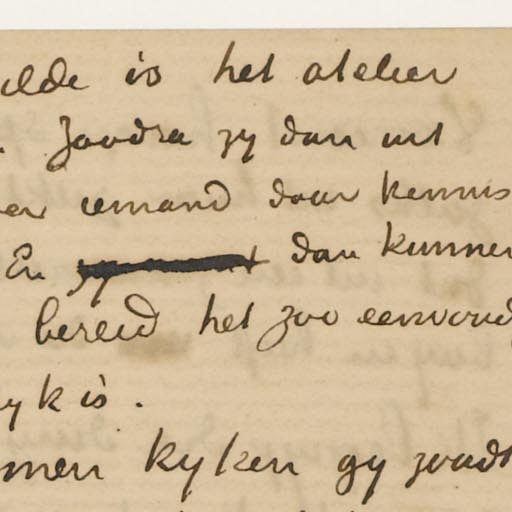 ilde is het atelier
. Zoodra zy dan uit
er iemand daar kennis
En dan kunnen
bereid het zoo eenvoud
yk is.
men kyken gy zoudt